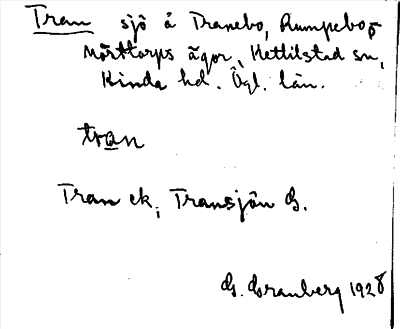 Tran sjö å Tranebo, Rumpebo o
Mörttorps ägor, Kettilstad sn,
Kinda hd. Ögl. län.
tran
Tran ek; Transjön G.
G. Granberg 1928